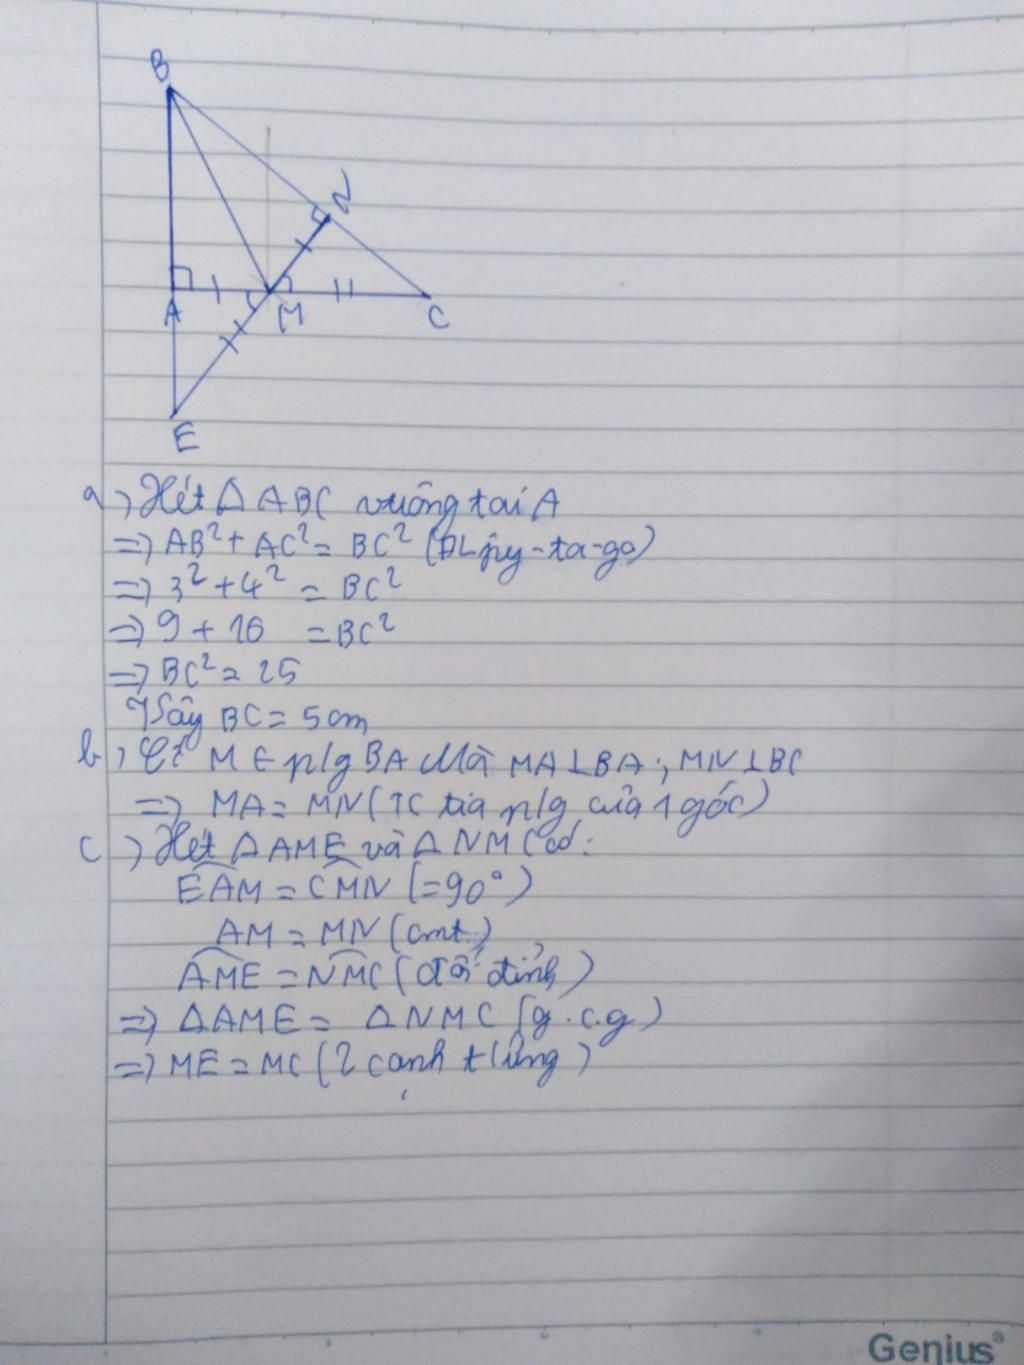 B
N
A
M
C
E
a) Xét Δ ABC vuông tại A
=> AB² + AC² = BC² (ĐL py-ta-go)
=> 3² + 4² = BC²
=> 9 + 16 = BC²
=> BC² = 25
Vậy BC = 5cm
b) Có M ∈ p/g BA Mà MA⊥BA; MN⊥BC
=> MA = MN (TC tia p/g của 1 góc)
c) Xét ΔAME và ΔNMC có:
EAM = CMN (=90°)
AM = MN (cmt)
AME = NMC (đối đỉnh)
=> ΔAME = ΔNMC (g.c.g)
=> ME = MC (2 cạnh t/ứng)
Genius